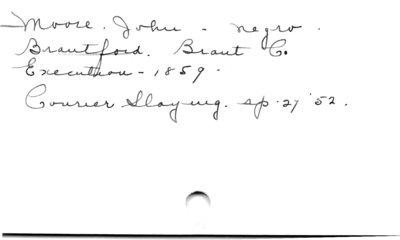 Moore. John - negro.
Brantford. Brant Co.
Execution - 1859.
Courier Slaying. sp. 27 '52.